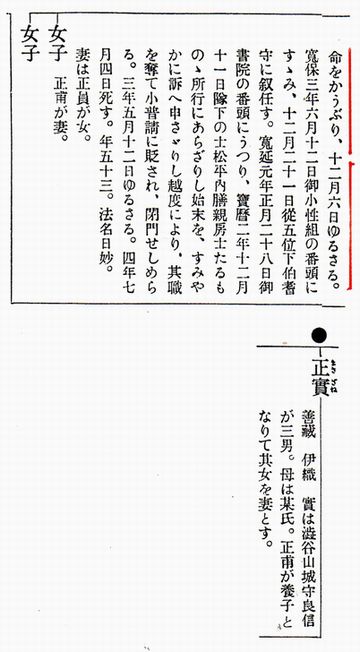 命をかうぶり、十二月六日ゆるさる。
寬保三年六月十二日御小性組の番頭に
すゝみ、十二月二十一日從五位下伯耆
守に叙任す。寬延元年正月二十八日御
書院の番頭にうつり、寶曆二年十二月
十一日隊下の士松平内膳親房士たるも
のゝ所行にあらざりし始末を、すみや
かに訴へ申さゞりし越度により、其職
を奪て小普請に貶され、閉門せしめら
る。三年五月十二日ゆるさる。四年七
月四日死す。年五十三。法名日妙。
妻は正員が女。
女子
正甫が妻。
女子
正實
まさざね
善藏 伊織 實は澁谷山城守良信
が三男。母は某氏。正甫が養子と
なりて其女を妻とす。